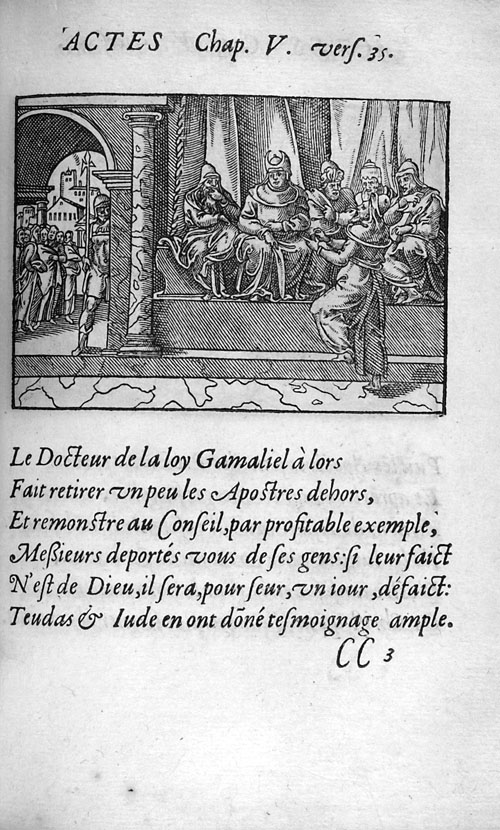 ACTES Chap. V. verſ. 35.
Le Docteur de la loy Gamaliel à lors
Fait retirer vn peu les Apoſtres dehors,
Et remonſtre au Conſeil, par profitable exemple,
Meßieurs deportés vous de ſes gens: ſi leur faict
N'eſt de Dieu, il ſera, pour ſeur, vn iour, défaict:
Teudas & Iude en ont dōné teſmoignage ample.
CC 3